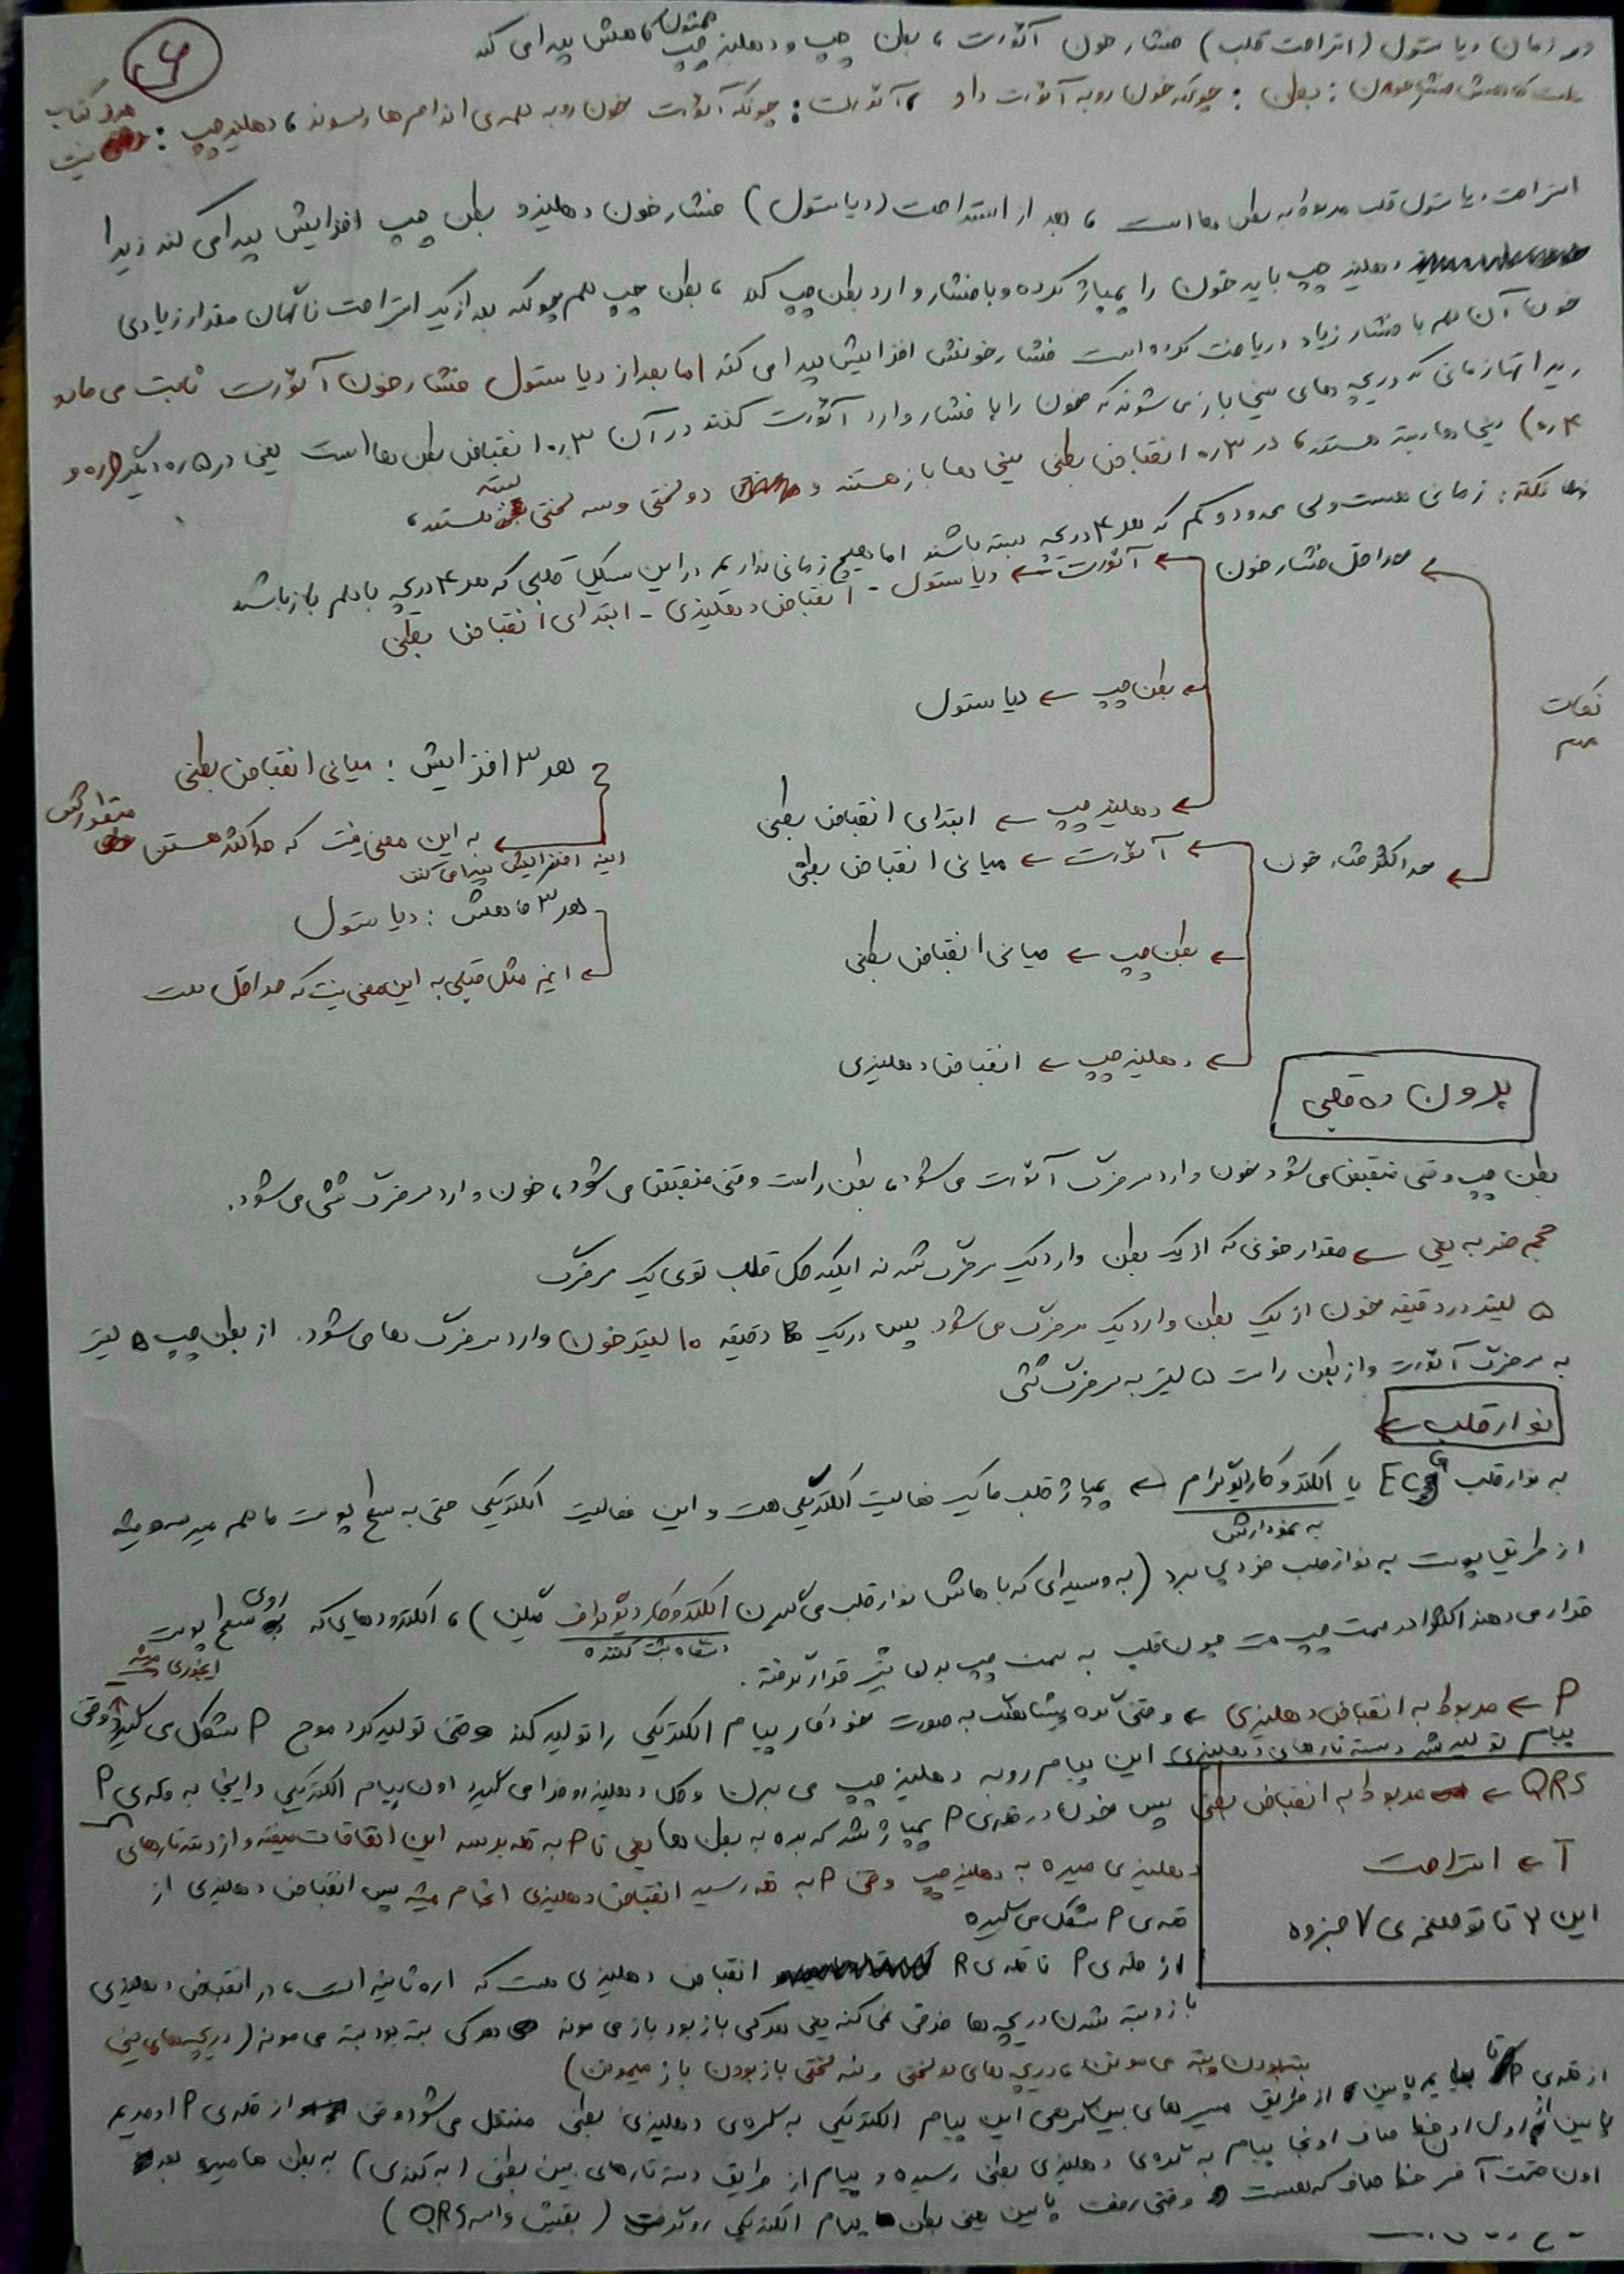 ۶
در زمان دیاستول (استراحت قلب) فشار خون آئورت ، بطن چپ و دهلیز چپ همشون کاهش پیدا می کنه
علت کاهش فشار خون : بطن : چونکه خون رو به آئورت داد ، آئورت : چونکه آئورت خون رو به همه ی اندام ها رسوند ، دهلیز چپ : نیست
هدف کتاب
استراحت دیاستول قلب مربوط به بطن ها است ، بعد از استراحت (دیاستول) فشار خون دهلیز و بطن چپ افزایش پیدا می کند زیرا
دهلیز چپ باید خون را پمپاژ کرده و با فشار وارد بطن چپ کند ، بطن چپ هم چونکه بعد از یک استراحت ناگهان مقدار زیادی
خون آن هم با فشار زیاد دریافت کرده است فشار خونش افزایش پیدا می کند اما بعد از دیاستول فشار خون آئورت ثابت می ماند
زیرا تنها زمانی که دریچه های سینی باز می شوند که خون را با فشار وارد آئورت کنند در آن ۰.۳ انقباض بطن ها است یعنی در ۰.۵ دیگر (۰.۱ و
۰.۴) سینی ها بسته هستند ، در ۰.۳ انقباض بطنی سینی ها باز هستند و دو لختی و سه لختی بسته هستند ،
نکته : زمانی هست ولی محدود و کم که هر ۴ دریچه بسته باشند اما هیچ زمانی نداریم در این سیکل قلبی که هر ۴ دریچه با هم باز باشند
نکات مهم
حداقل فشار خون
آئورت ← دیاستول - انقباض دهلیزی - ابتدای انقباض بطنی
بطن چپ ← دیاستول
دهلیز چپ ← ابتدای انقباض بطنی
حداکثر فشار خون
آئورت ← میانی انقباض بطنی
بطن چپ ← میانی انقباض بطنی
دهلیز چپ ← انقباض دهلیزی
هر ۳ افزایش : میانی انقباض بطنی
به این معنی نیست که حداکثر هستن منظورش
اینه افزایش پیدا می کنن
هر ۳ کاهش : دیاستول
اینم مثل قبلی به این معنی نیست که حداقل هست
برون ده قلبی
بطن چپ وقتی منقبض می شود خون وارد سرخرگ آئورت می شود ، بطن راست وقتی منقبض می شود ، خون وارد سرخرگ ششی می شود .
حجم ضربه یعنی ← مقدار خونی که از یک بطن وارد یک سرخرگ شد نه اینکه کل قلب توی یک سرخرگ
۵ لیتر در دقیقه خون از یک بطن وارد یک سرخرگ می شود پس در یک دقیقه ۱۰ لیتر خون وارد سرخرگ ها می شود . از بطن چپ ۵ لیتر
به سرخرگ آئورت و از بطن راست ۵ لیتر به سرخرگ ششی
نوار قلب ←
به نوار قلب ECG یا الکتروکاردیوگرام ← پمپاژ قلب ما یک فعالیت الکتریکی هست و این فعالیت الکتریکی حتی به سطح پوست ما هم میرسه و میشه
به نمودارش
از طریق پوست به نوار قلب خود پی برد (به وسیله ای که باهاش نوار قلب می گیرن الکتروکاردیوگراف میگن) ، الکترودهایی که روی سطح پوست
دستگاه ثبت کننده
قرار می دهند اکثرا در سمت چپ هست چون قلب به سمت چپ بدن بیشتر قرار گرفته .
P ← مربوط به انقباض دهلیزی ← وقتی گره پیشاهنگ به صورت خودکار پیام الکتریکی را تولید کند وقتی تولید کرد موج P شکل می گیرد وقتی
اینجوری میشه
پیام تولید شد دسته تارهای دهلیزی این پیام رو به دهلیز چپ می برن و کل دهلیز رو فرا می گیرد اون پیام الکتریکی و اینجا به قله ی P
QRS ← مربوط به انقباض بطنی
T ← استراحت
این ۳ تا تو صفحه ی ۷ جزوه
پس خون در قله ی P پمپاژ شد که بده به بطن ها یعنی تا P به قله برسه این اتفاقات میفته و از دسته تارهای
دهلیزی میره به دهلیز چپ وقتی P به قله رسید انقباض دهلیزی انجام میشه پس انقباض دهلیزی از
قله ی P شکل می گیره
از قله ی P تا قله ی R انقباض دهلیزی هست که ۰.۱ ثانیه است ، در انقباض دهلیزی
باز و بسته شدن دریچه ها فرقی نمی کنه یعنی هر کی باز بود باز می مونه هر کی بسته بود بسته می مونه (دریچه های سینی
بسته بودن بسته می مونن ، دریچه های دو لختی و سه لختی باز بودن باز میمونن)
از قله ی P تا بیایم پایین از طریق مسیرهای بین گرهی این پیام الکتریکی به گره ی دهلیزی بطنی منتقل می شود وقتی از قله ی P اومدیم
پایین اول اون خط صاف اونجا پیام به گره ی دهلیزی بطنی رسیده و پیام از طریق دسته تارهای بین بطنی (به کندی) به بطن ها میره بعد
اون قسمت آخر خط صاف که هست وقتی رفت پایین یعنی بطن پیام الکتریکی رو گرفت (بقیش واسه QRS)